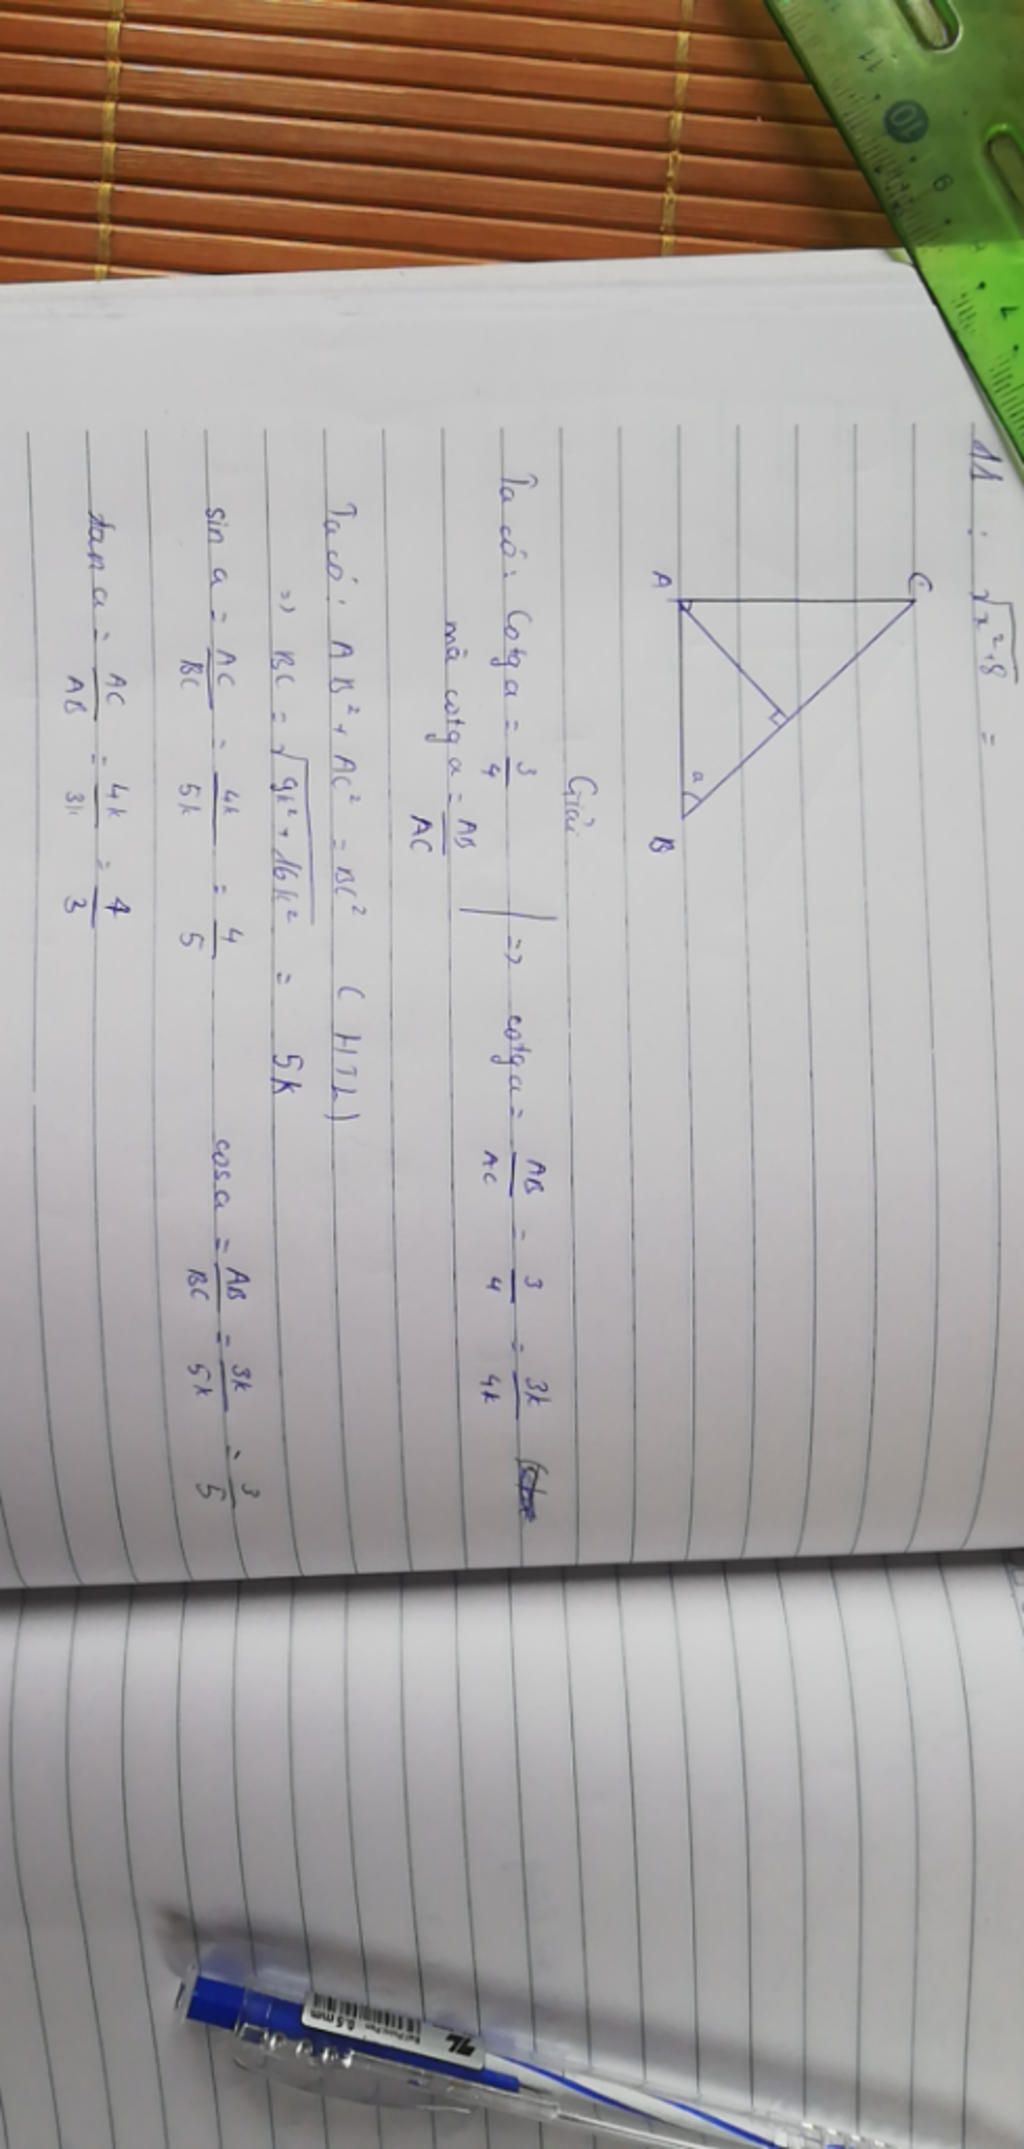 11 : √x²+8 =
C
A
B
a
Giải
Ta có: Cotg a = 3/4
mà cotg a = AB/AC
=> cotg a = AB/AC = 3/4 = 3k/4k
Ta có: AB² + AC² = BC² ( HTL)
=> BC = √9k² + 16k² = 5k
sin a = AC/BC = 4k/5k = 4/5 cos a = AB/BC = 3k/5k = 3/5
tan a = AC/AB = 4k/3k = 4/3
11
10
9
7
0.5 mm
Ball Point Pen
TL